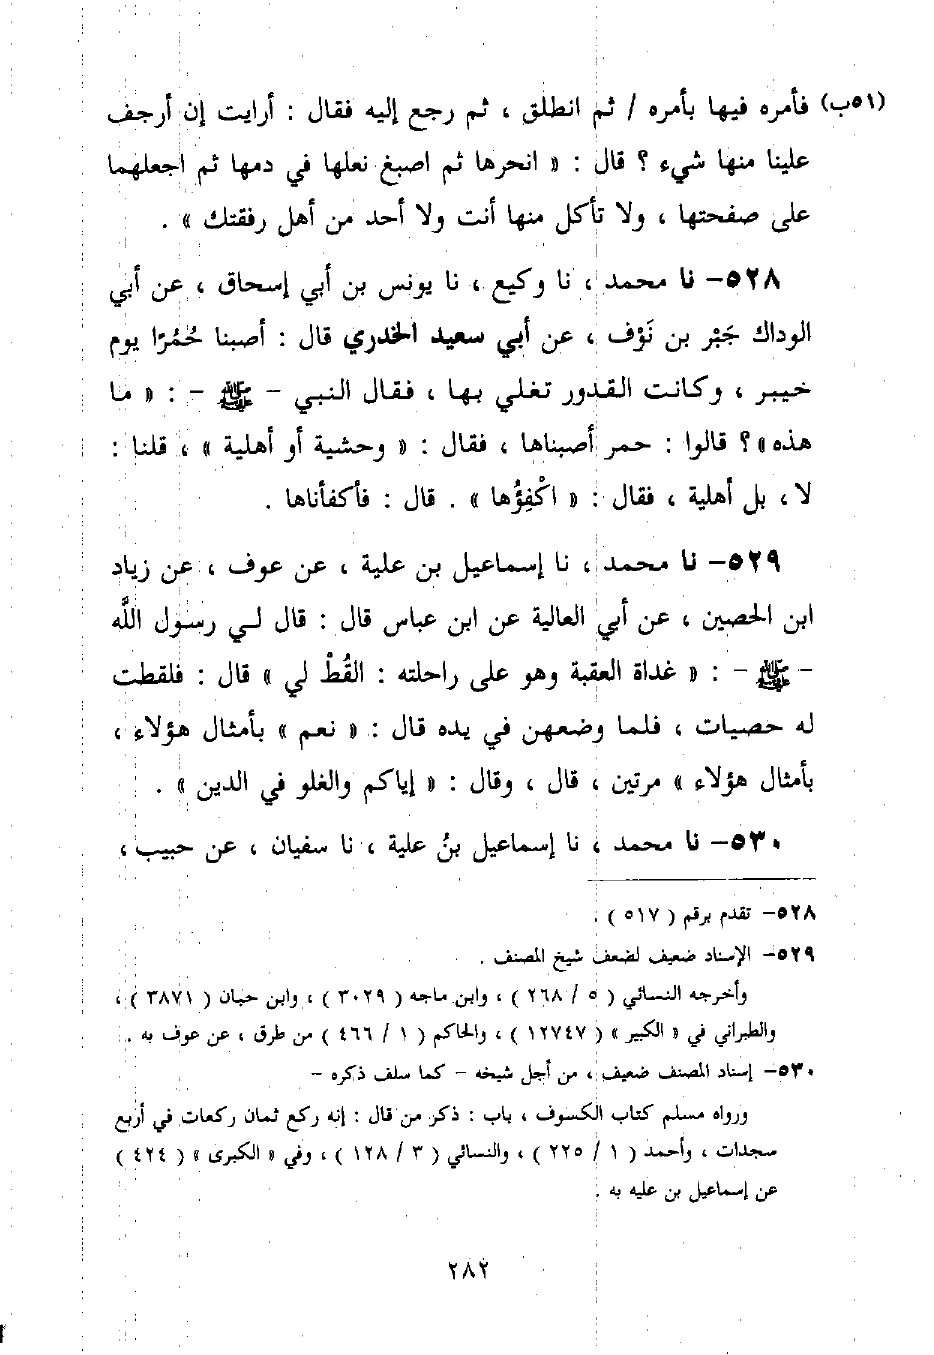 (٥١ب) فأمره فيها بأمره / ثم انطلق ، ثم رجع إليه فقال : أرايت إن أرجف
علينا منها شيء ؟ قال : « انحرها ثم اصبغ نعلها في دمها ثم اجعلهما
على صفحتها ، ولا تأكل منها أنت ولا أحد من أهل رفقتك » .
٥٢٨- نا محمد ، نا وكيع ، نا يونس بن أبي إسحاق ، عن أبي
الوداك جَبْر بن نَوْف ، عن أبي سعيد الخدري قال : أصبنا حُمُرًا يوم
خيبر ، وكانت القدور تغلي بها ، فقال النبي - ﷺ - : « ما
هذه » ؟ قالوا : حمر أصبناها ، فقال : « وحشية أو أهلية » ، قلنا :
لا ، بل أهلية ، فقال : « اكْفِؤُها » . قال : فأكفأناها .
٥٢٩- نا محمد ، نا إسماعيل بن علية ، عن عوف ، عن زياد
ابن الحصين ، عن أبي العالية عن ابن عباس قال : قال لي رسول اللَّه
- ﷺ - : « غداة العقبة وهو على راحلته : القُطْ لي » قال : فلقطت
له حصيات ، فلما وضعهن في يده قال : « نعم » بأمثال هؤلاء ،
بأمثال هؤلاء » مرتين ، قال ، وقال : « إياكم والغلو في الدين » .
٥٣٠- نا محمد ، نا إسماعيل بنُ علية ، نا سفيان ، عن حبيب ،
٥٢٨- تقدم برقم ( ٥١٧ ) .
٥٢٩- الإسناد ضعيف لضعف شيخ المصنف .
وأخرجه النسائي ( ٥ / ٢٦٨ ) ، وابن ماجه ( ٣٠٢٩ ) ، وابن حبان ( ٣٨٧١ ) ،
والطبراني في « الكبير » ( ١٢٧٤٧ ) ، والحاكم ( ١ / ٤٦٦ ) من طرق ، عن عوف به .
٥٣٠- إسناد المصنف ضعيف ، من أجل شيخه - كما سلف ذكره -
ورواه مسلم كتاب الكسوف ، باب : ذكر من قال : إنه ركع ثمان ركعات في أربع
سجدات ، وأحمد ( ١ / ٢٢٥ ) ، والنسائي ( ٣ / ١٢٨ ) ، وفي « الكبرى » ( ٤٢٤ )
عن إسماعيل بن عليه به .
٢٨٢